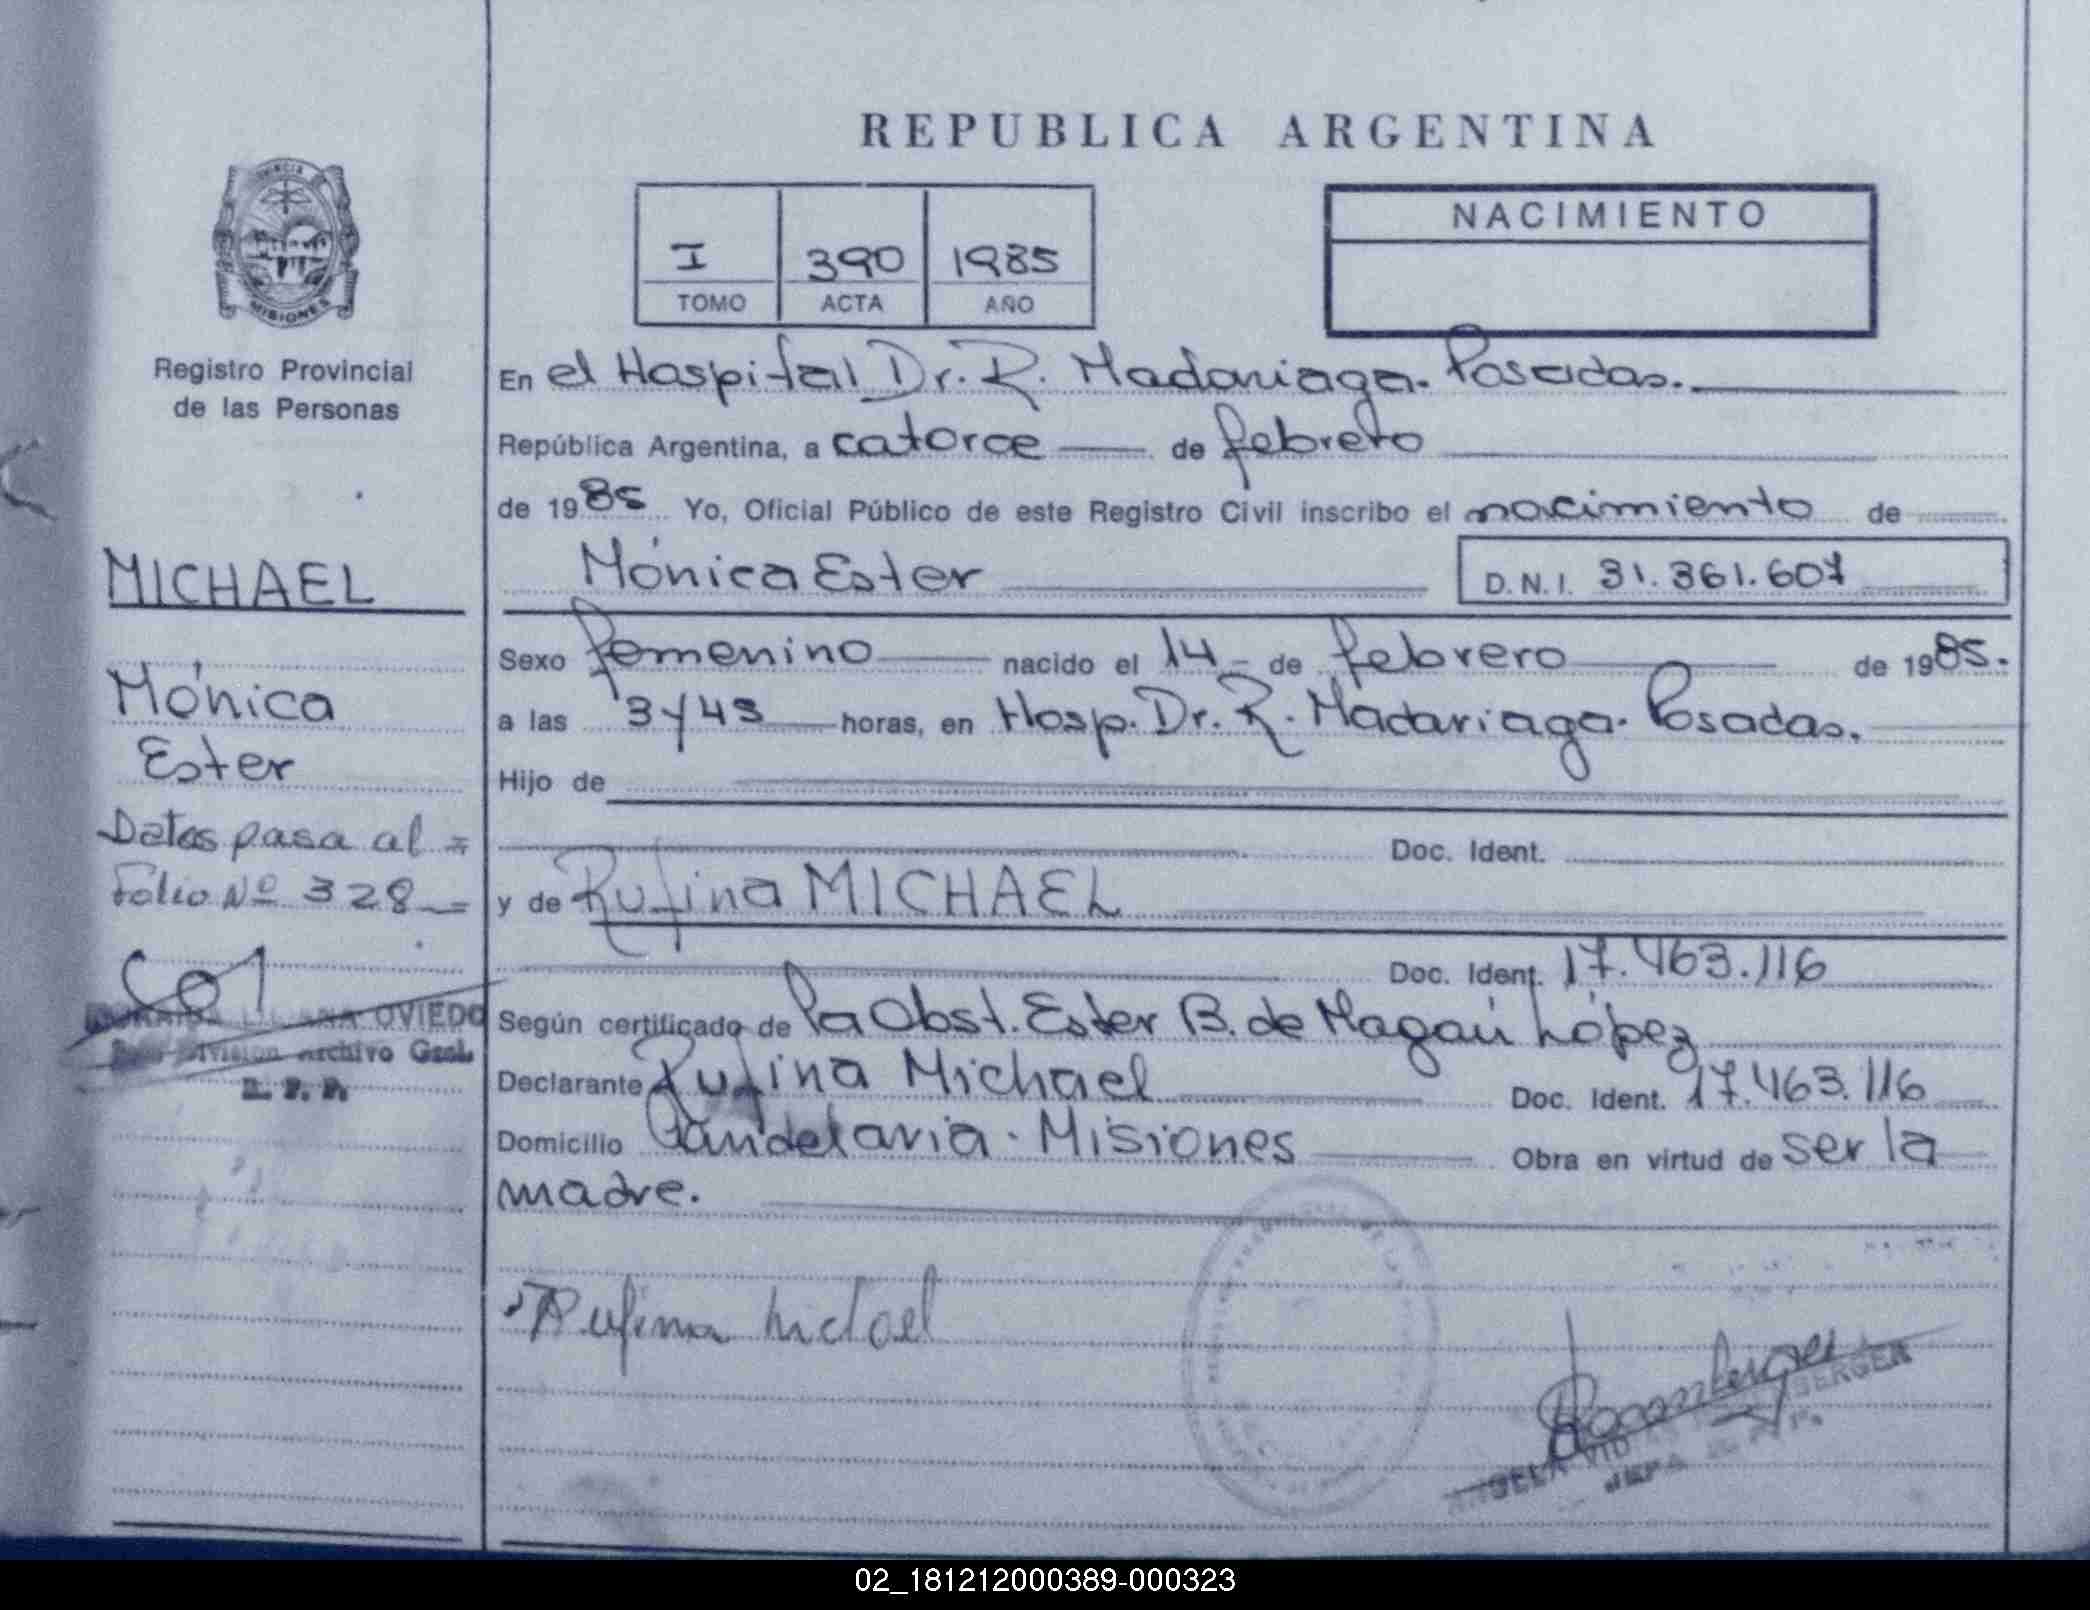 REPUBLICA ARGENTINA
PROVINCIA
MISIONES
Registro Provincial
de las Personas
I 390 1985
TOMO ACTA AÑO
NACIMIENTO
En el Hospital Dr. R. Madariaga. Posadas.
República Argentina, a catorce de febrero
de 1985 Yo, Oficial Público de este Registro Civil inscribo el nacimiento de
Mónica Ester
D.N.I. 31.361.607
Sexo femenino nacido el 14 de febrero de 1985.
a las 3 y 45 horas, en Hosp. Dr. R. Madariaga. Posadas.
Hijo de
Doc. Ident.
y de Rufina MICHAEL
Doc. Ident. 17.463.116
Según certificado de la Obst. Ester B. de Magaú López
Declarante Rufina Michael Doc. Ident. 17.463.116
Domicilio Candelaria - Misiones Obra en virtud de ser la
madre.
Rufina Michael
MICHAEL
Mónica
Ester
Datos pasa al =
Folio Nº 328 =
OVIEDO
División Archivo Gral.
R. P. P.
02_181212000389-000323